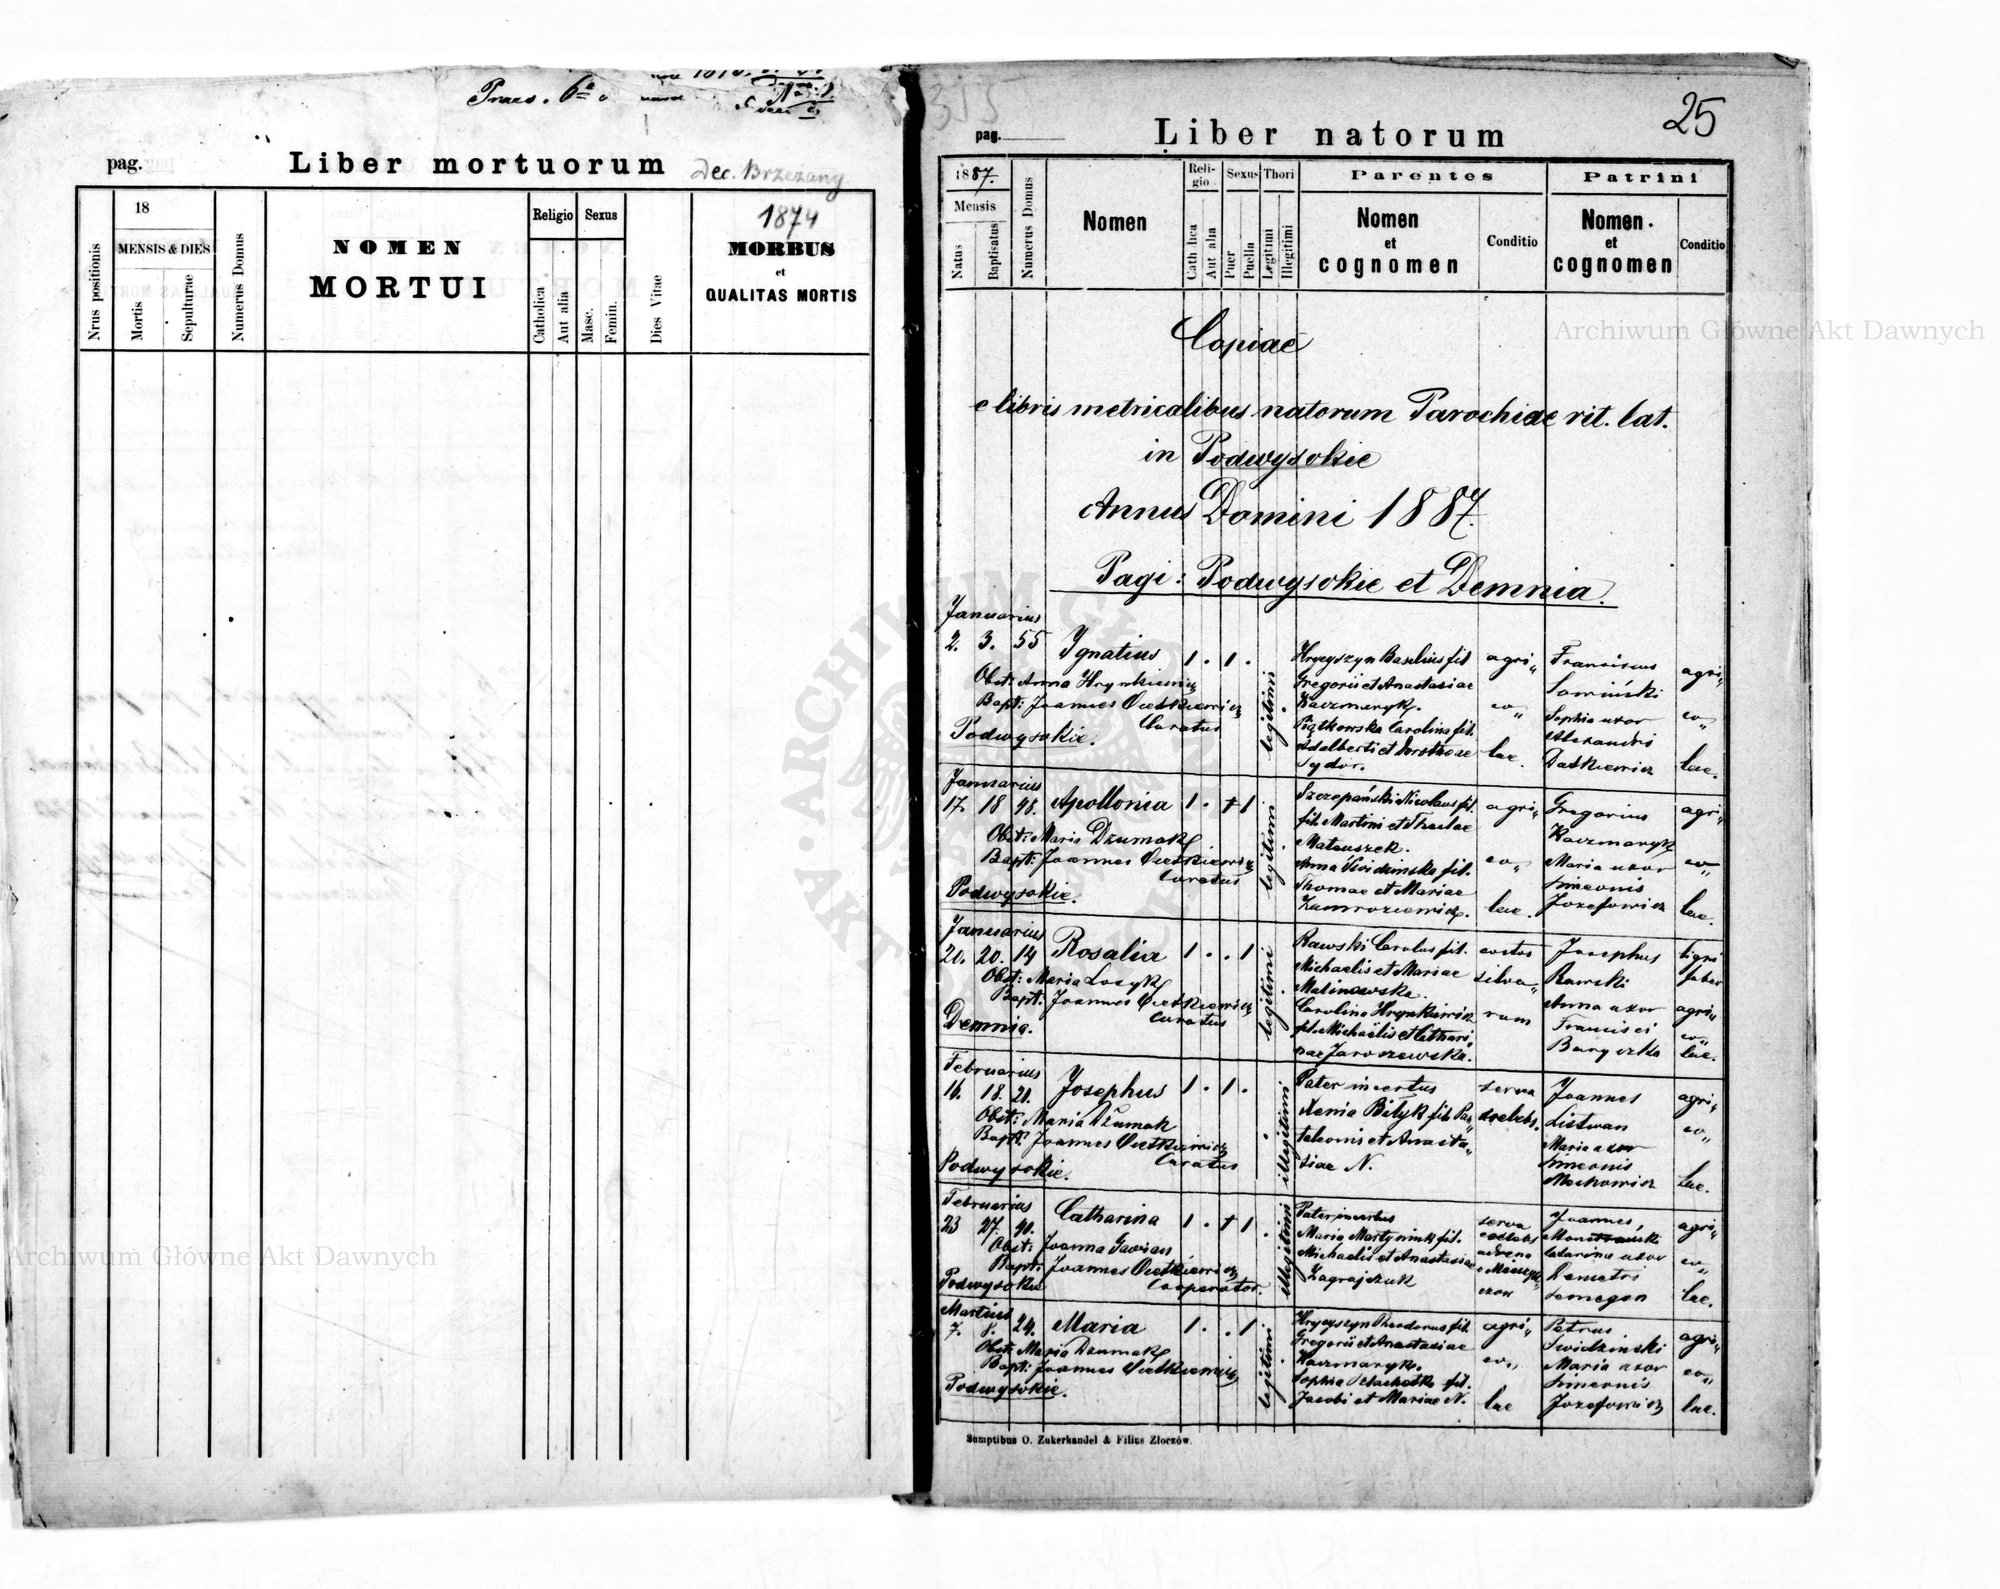 Praes. 6
pag.
Liber mortuorum
Dec. Brzeżany
18
MENSIS & DIES
Nrus positionis
Mortis
Sepulturae
Numerus Domus
NOMEN
MORTUI
Religio
Sexus
Catholica
Aut alia
Masc.
Femin.
Dies Vitae
1874
MORBUS
et
QUALITAS MORTIS
315
25
pag.
Liber natorum
1887.
Mensis
Natus
Baptisatus
Numerus Domus
Nomen
Reli-
gio
Sexus
Thori
Catholica
Aut alia
Puer
Puella
Legitimi
Illegitimi
Parentes
Nomen
et
cognomen
Conditio
Patrini
Nomen
et
cognomen
Conditio
Copiae
e libris metricalibus natorum Parochiae rit. lat.
in Podwysokie
Annus Domini 1887.
Pagi: Podwysokie et Demnia.
Januarius
2. 3. 55 Ignatius 1 . 1 .
Obst: Anna Hrynkiewicz
Bapt: Joannes Cietkiewicz
Curatus
Podwysokie.
legitimi
Hrycyszyn Basilius fil
Gregorii et Anastasiae
Kaczmaryk.
Piątkowska Carolina fil.
Adalberti et Dorotheae
Sydor.
agri„
co„
lae.
Franciscus
Sawiński
Sophia uxor
Alexandri
Daskiewicz
agri„
co„
lae.
Januarius
17. 18 98. Apollonia 1 . + 1
Obst: Maria Dzumak
Bapt: Joannes Cietkiewicz
Curatus
Podwysokie.
legitimi
Szczepański Nicolaus fil.
fil. Martini et Theclae
Mateuszek.
Anna Świdzinska fil.
Thomae et Mariae
Zamroziewicz.
agri„
co„
lae.
Gregorius
Kaczmaryk
Maria uxor
Simeonis
Jozefowicz
agri„
co„
lae.
Januarius
20. 20. 14 Rosalia 1 . . 1
Obst: Maria Losyk
Bapt: Joannes Cietkiewicz
Curatus
Demnia.
legitimi
Rawski Carolus fil.
Michaelis et Mariae
Malinowska.
Carolina Hrynkiewicz
fil. Michaëlis et Cathari„
nae Jaroszewska.
custos
silva„
rum
Josephus
Rawski
Anna uxor
Francisci
Baryczka
ligni
faber
agri„
co„
lae.
Februarius
16. 18. 21. Josephus 1 . 1 .
Obst: Maria Dzumak
Bapt: Joannes Cietkiewicz
Curatus
Podwysokie.
illegitimi
Pater incertus
Xenia Bilyk fil. Pan„
taleonis et Anasta„
siae N.
serva
caelebs.
Joannes
Listwan
Maria uxor
Simeonis
Mockowicz
agri„
co„
lae.
Februarius
23 27. 90. Catharina 1 . + 1
Obst: Joanna Gawian
Bapt: Joannes Cietkiewicz
Cooperator.
Podwysokie
illegitimi
Pater incertus
Maria Martyniuk fil.
Michaelis et Anastasiae
Zagrajczuk
serva
caelebs
advena
Joannes,
Catarina uxor
Demetri
Semegen
agri„
co„
lae.
Martius
7. 8. 24. Maria 1 . . 1
Obst: Maria Dzumak
Bapt: Joannes Cietkiewicz
Podwysokie.
legitimi
Hrycyszyn Theodorus fil.
Gregorii et Anastasiae
Kaczmaryk.
Jacobi et Mariae N.
agri„
co„
lae
Petrus
Świdzinski
Maria uxor
Simeonis
Jozefowicz
agri„
co„
lae.
Sumptibus O. Zukerkandel & Filius Złoczów.
Archiwum Główne Akt Dawnych
Archiwum Główne Akt Dawnych
ARCHIWUM GŁÓWNE AKT DAWNYCH